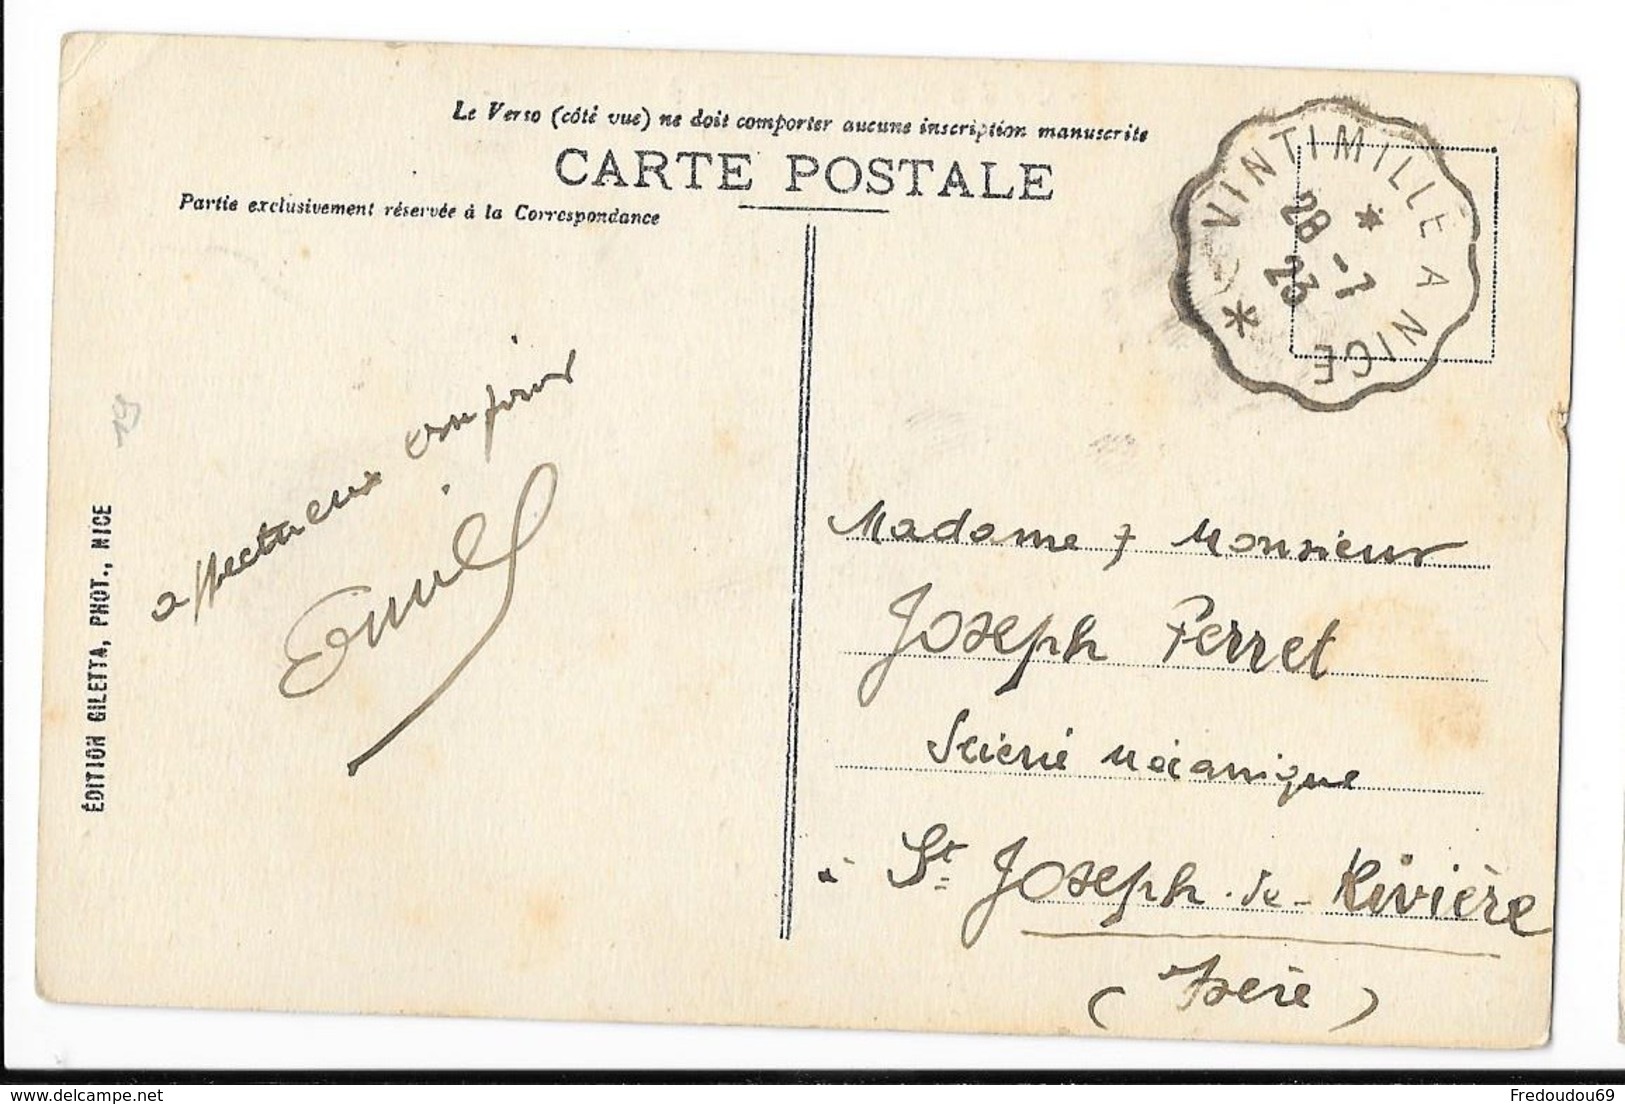 Le Verso (côté vue) ne doit comporter aucune inscription manuscrite
CARTE POSTALE
Partie exclusivement réservée à la Correspondance
VINTIMILLE A NICE
28 -7
23
affectueux
Emile
ÉDITION GILETTA, PHOT., NICE
Madame & Monsieur
Joseph Perret
Scierie Mécanique
à St Joseph-de-Rivière
(Isère)
delcampe.net
Fredoudou69